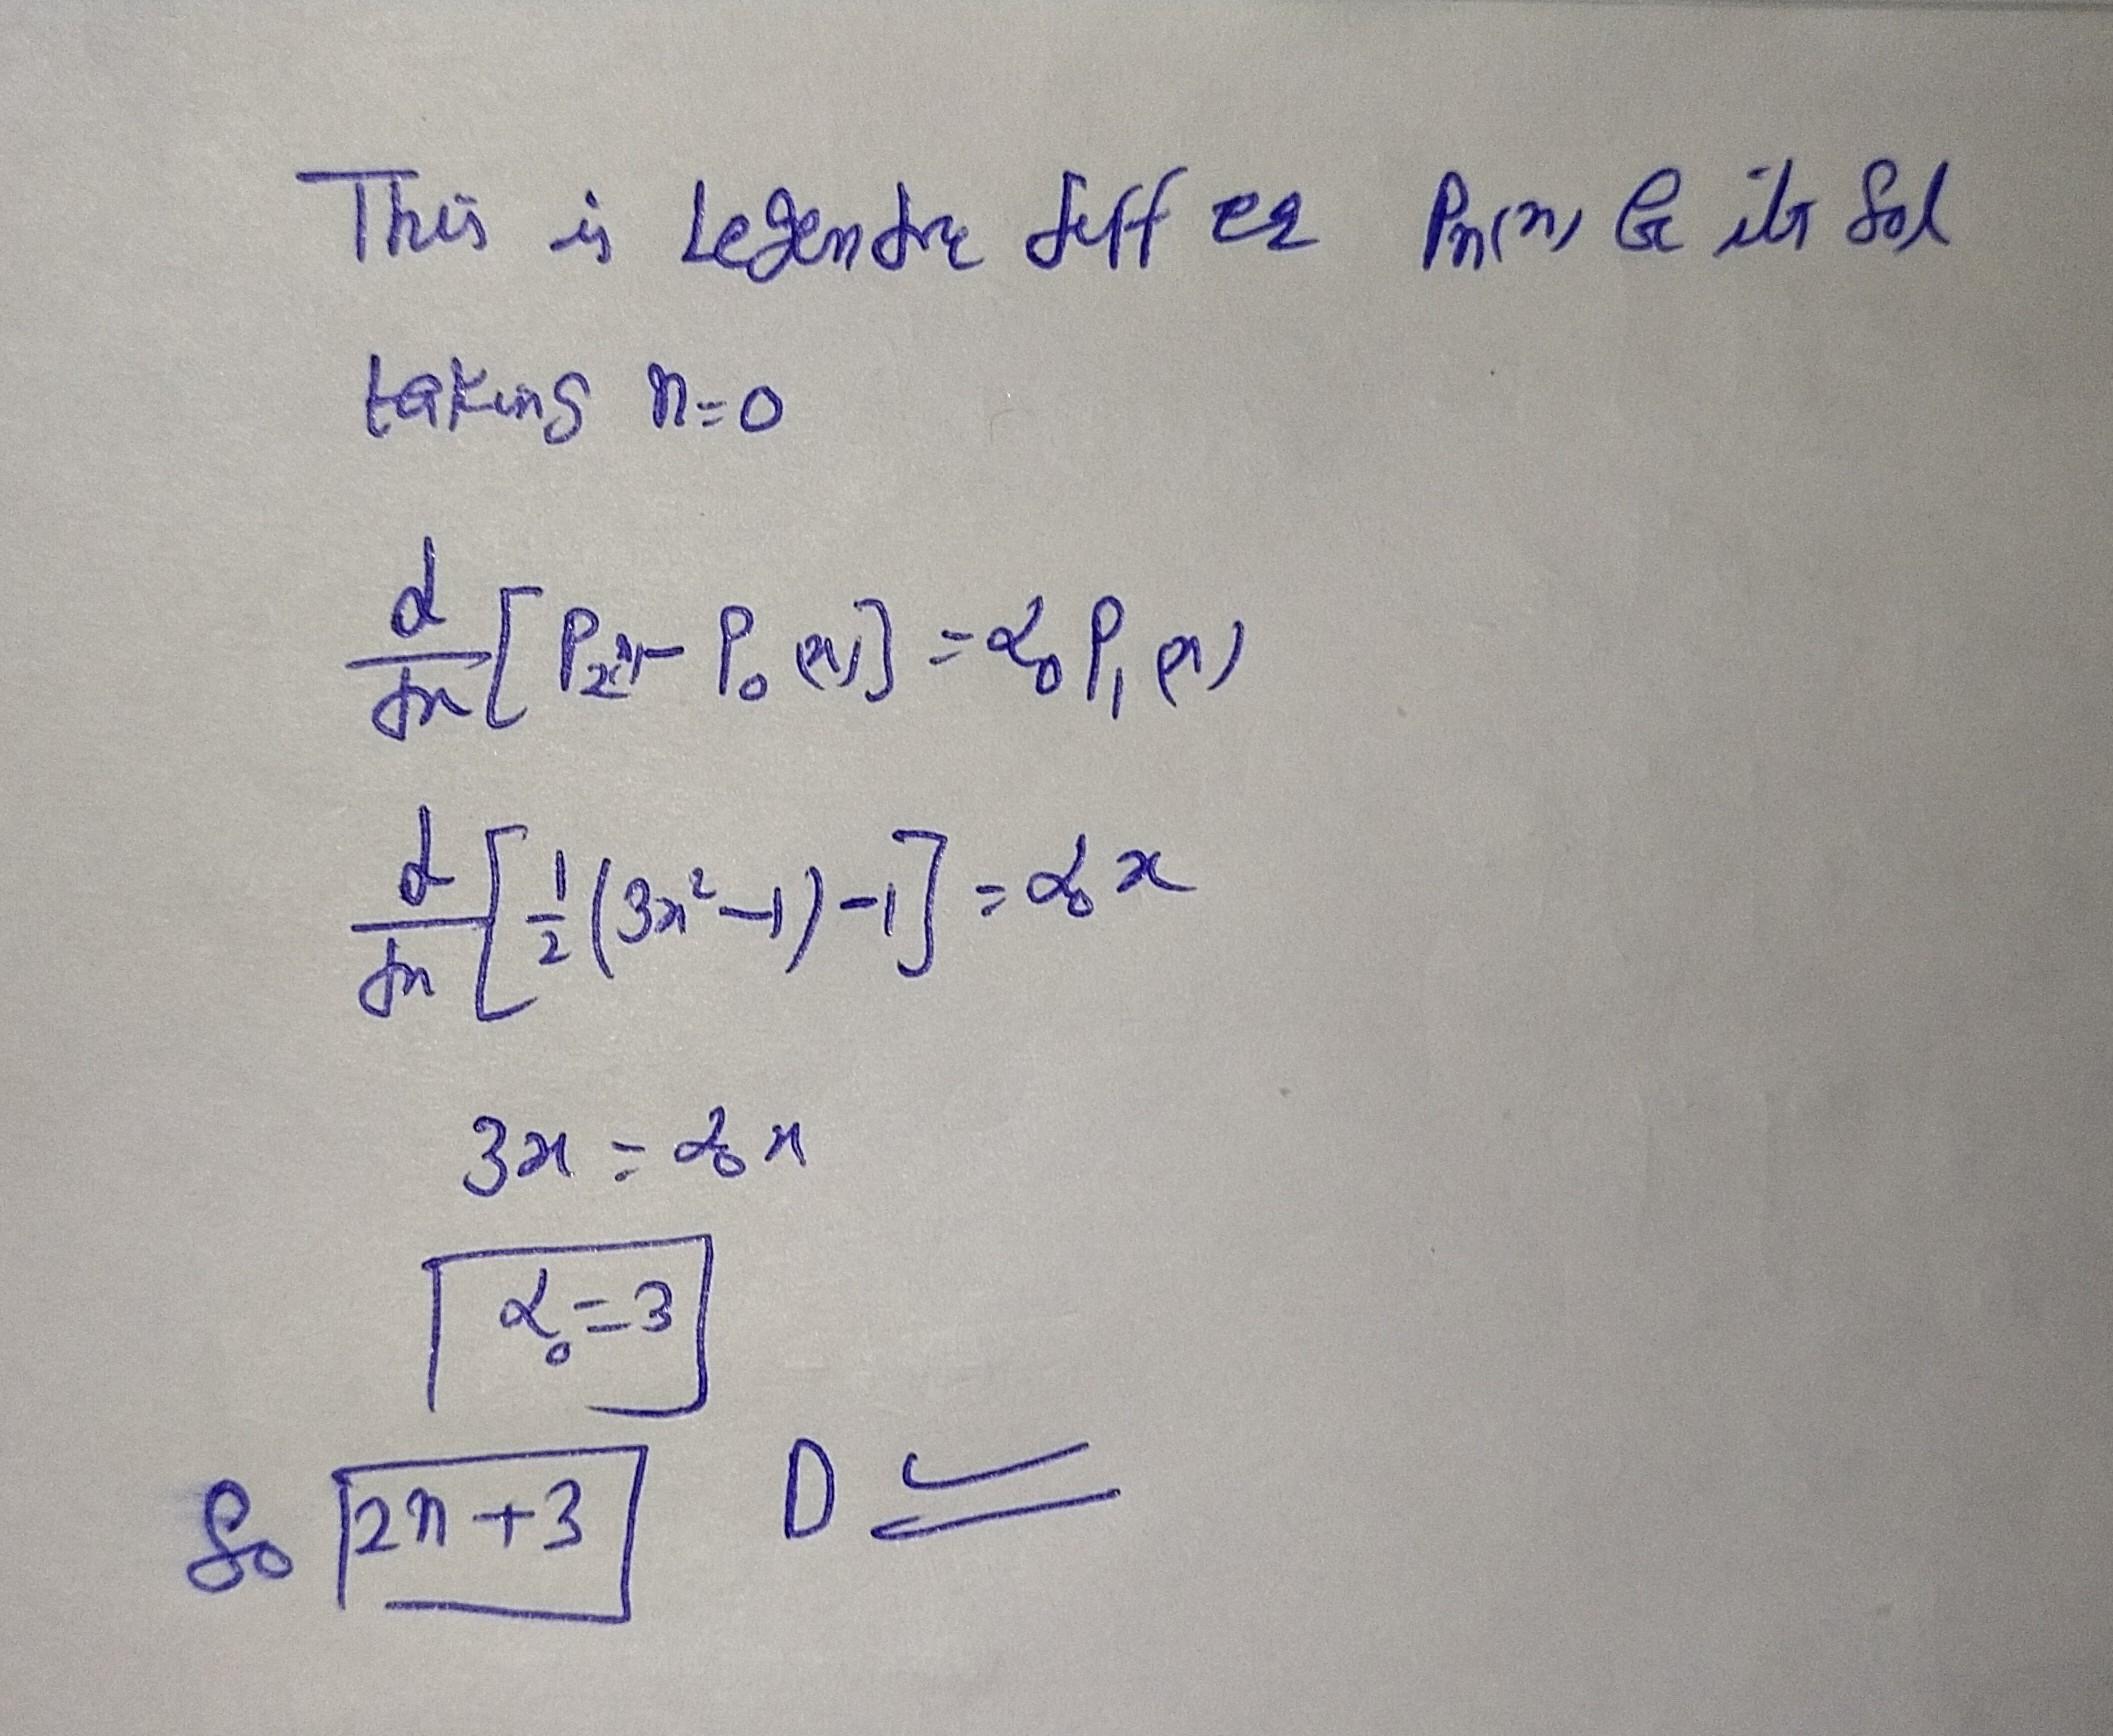 This is Legendre diff eq Pn(x) be its Sol
taking n=0
d/dx [P₂(x) - P₀(x)] = α₀ P₁(x)
d/dx [1/2 (3x² - 1) - 1] = α₀ x
3x = α₀ x
α₀ = 3
So 2n+3 D